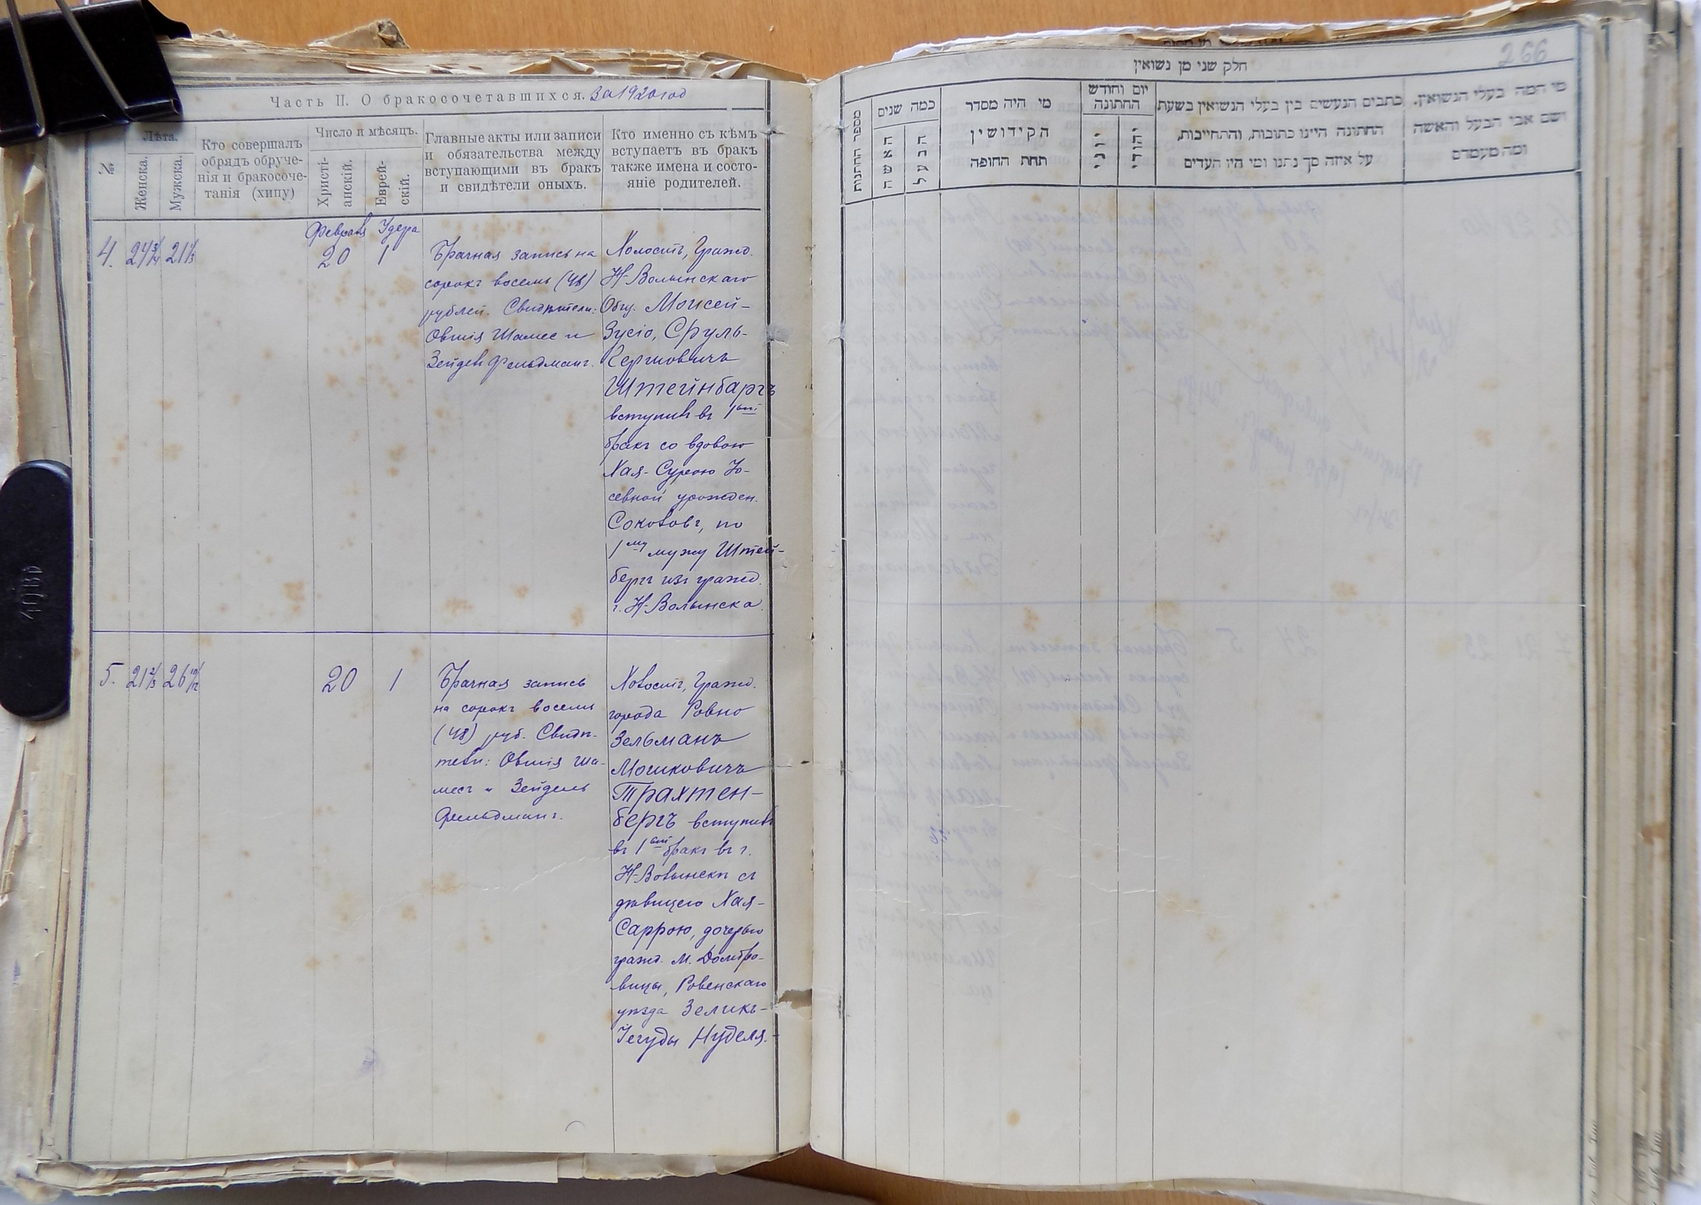 Часть II. О бракосочетавшихся. За 1920 год
№
Лѣта.
Женска.
Мужска.
Кто совершалъ
обрядъ обруче-
нія и бракосоче-
танія (хипу)
Число и мѣсяцъ.
Христі-
анскій.
Еврей-
скій.
Главные акты или записи
и обязательства между
вступающими въ бракъ
и свидѣтели оныхъ.
Кто именно съ кѣмъ
вступаетъ въ бракъ
также имена и состо-
яніе родителей.
Февраля
4.
20
1
Брачная запись на
сорокъ восемь (48)
рублей. Свидѣтели:
Овшія Шамес и
Зейдель Фельдманъ.
Холостъ, гражд.
Н-Волынскаго
Общ. Мойсей-
Зусіо, Сруль-
Гершковичъ
Штейнбаргъ
вступилъ въ 1ый
бракъ со вдовою
Хая-Суррою Іо-
севной урожден.
по
1му мужу Штей-
бергъ изъ гражд.
г. Н-Волынска.
5.
20
1
Брачная запись
на сорокъ восемь
(48) руб. Свидѣ-
тели: Овшія Ша-
месъ и Зейдель
Фельдманъ.
Холостъ, гражд.
города Ровно
Зельманъ
Мошковичъ
Трахтен-
бергъ вступилъ
въ 1ый бракъ въ г.
Н-Волынскѣ съ
дѣвицею Хая-
Саррою, дочерью
гражд. м. Домбро-
вицы, Ровенскаго
уѣзда Зеликъ-
Іегуды Нуделя.
266
חלק שני מן נשואין
מספר החתונות
כמה שנים
האשה
הבעל
מי היה מסדר
הקידושין
תחת החופה
יום וחודש
החתונה
יוני
יהודי
כתבים הנעשים בין בעלי הנשואין בשעת
החתונה היינו כתובות, והתחייבות,
על איזה סך נתנו ומי היו העדים
מי המה בעלי הנשואין.
ושם אבי הבעל והאשה
ומה מעמדם